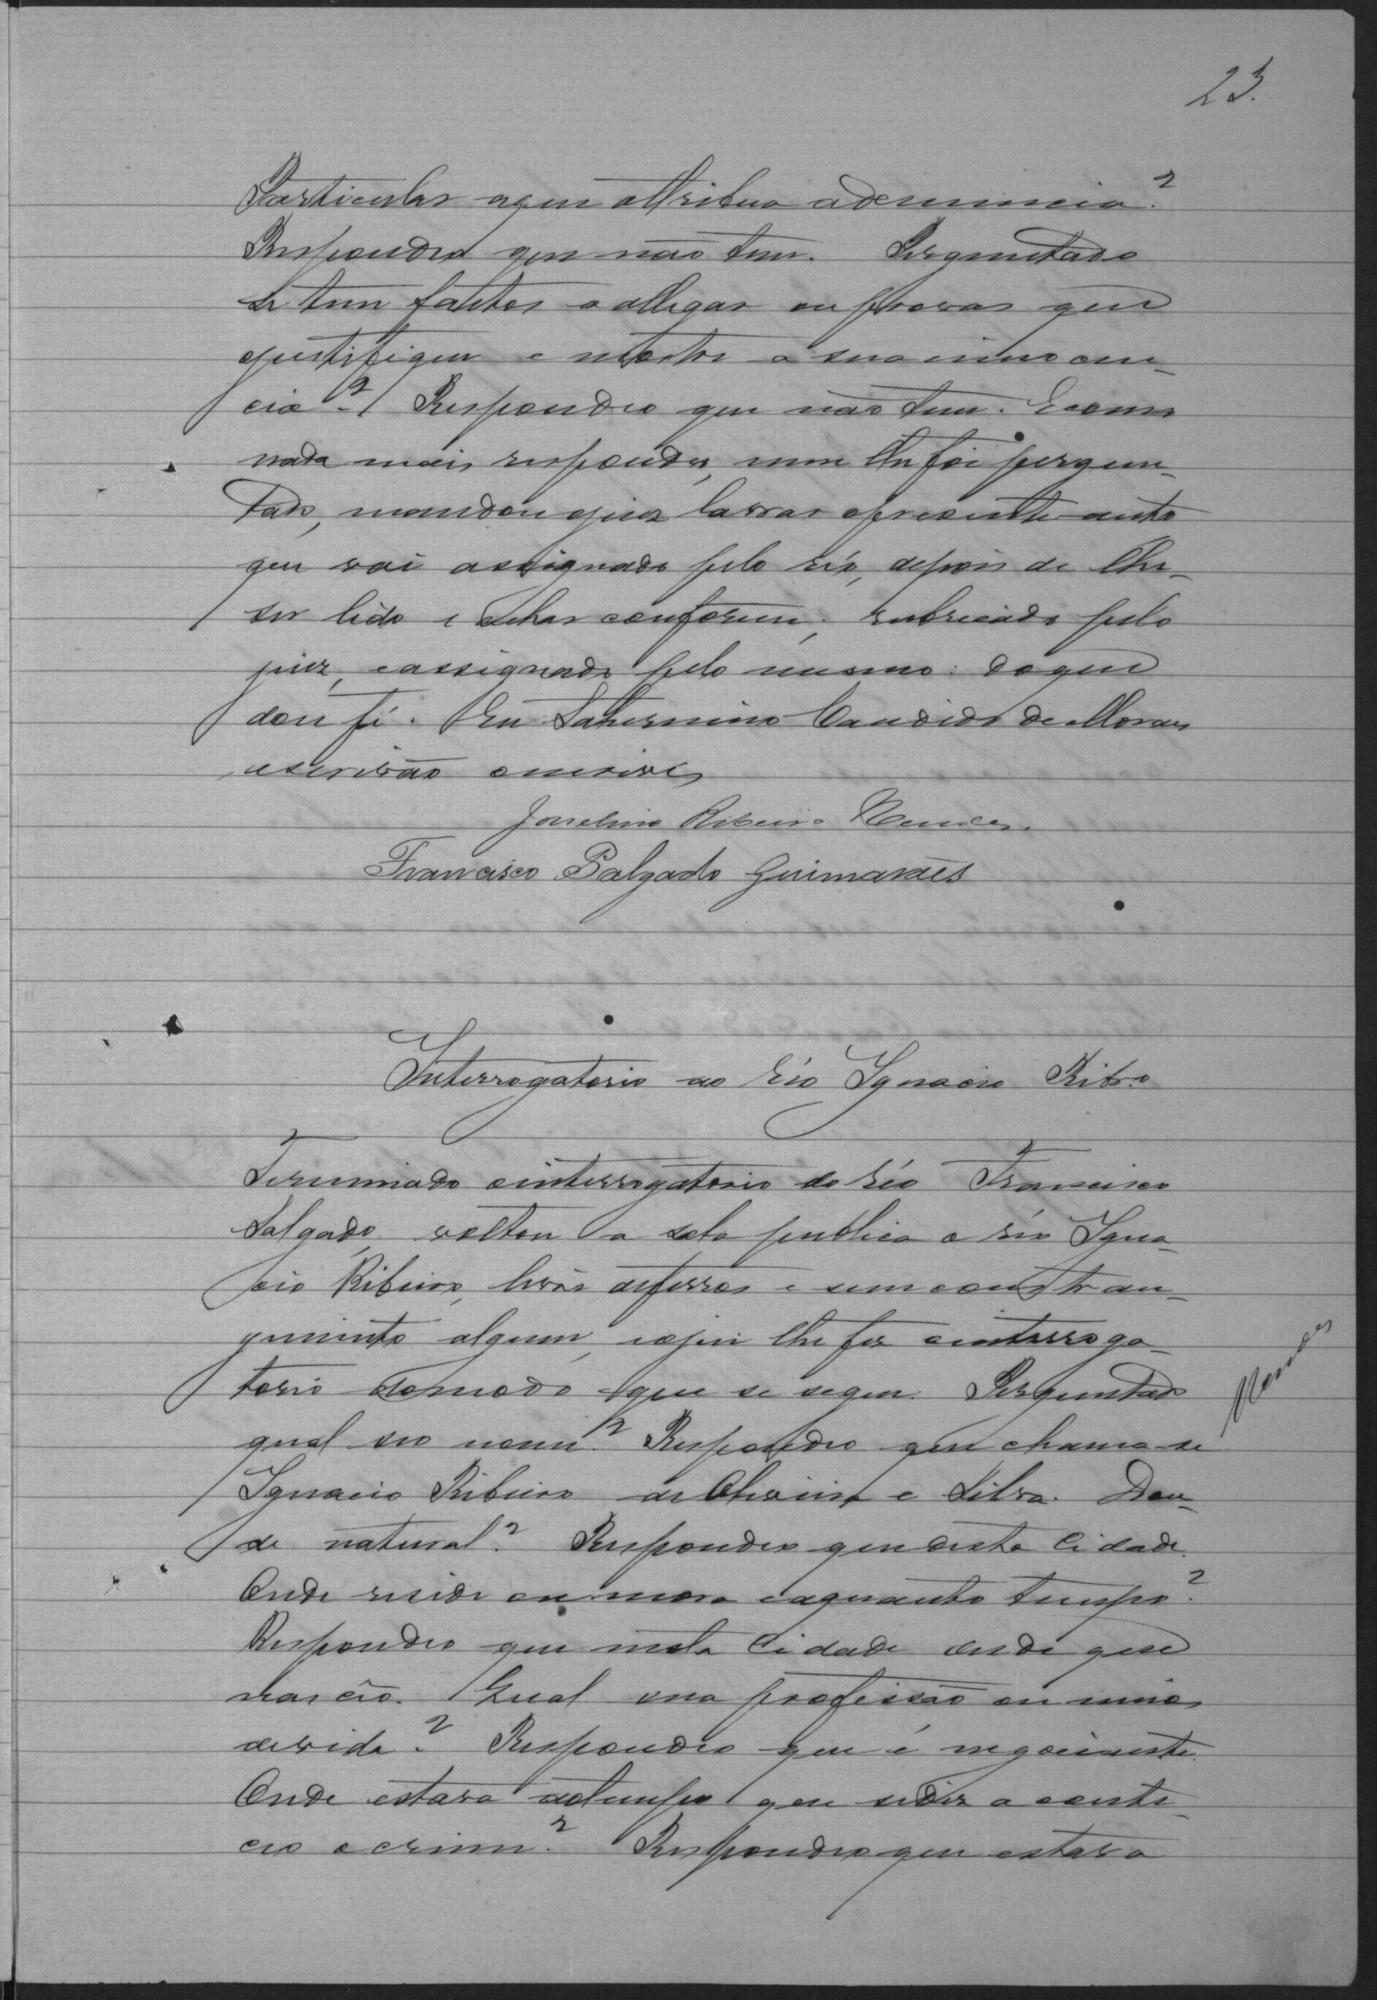 23.
Particular aquem attribua a denuncia?
Respondeo que não tem. Perguntado
se tem factos a allegar ou provas que
justifiquem e mostre a sua innocen-
cia? Respondeo que não tem. E como
nada mais respondeu, nem lhe foi pergun-
tado, mandou o juiz lavrar o presente auto
que vai assignado pelo réo, depois de lhe
ser lido e achar conforme, rubricado pelo
juiz, e assignado pelo mesmo: do que
dou fé. Eu Saturnino Candido de Moraes
escrivão o escrivi,
Joselino Ribeiro Mendes.
Francisco Salgado Guimarães
Interrogatorio ao réo Ignacio Ribro
Terminado o interrogatorio do réo Francisco
Salgado, voltou a sala publica o réo Igna-
cio Ribeiro, livre de ferros e sem constran-
gimento algum, e o juiz lhe fez o interroga-
torio do modo que se segue. Perguntado
qual seo nome? Respondeo que chama-se
Ignacio Ribeiro de Oliveira e Silva. Don-
de natural? Respondeo que desta Cidade.
Onde reside ou mora e a quanto tempo?
Respondeo que nesta Cidade desde que
nasceo. Qual sua profissão ou meios
de vida? Respondeo que é negociante.
Onde estava ao tempo que se diz aconte-
ceo o crime? Respondeo que estava
Mendes